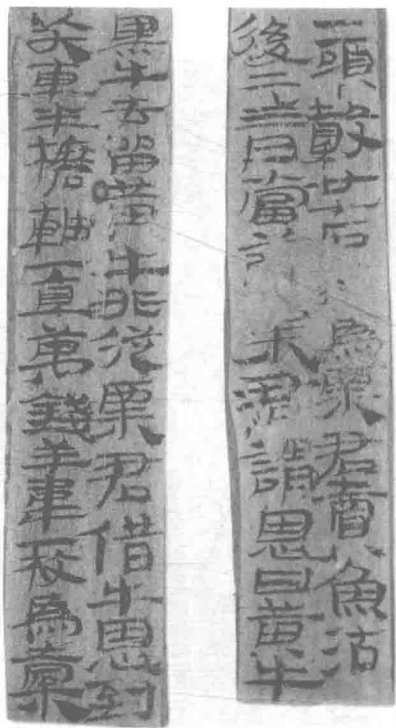 一頭穀廿七石為粟君賣魚沽
後二三日當粟君謂恩曰黃牛
黑牛去留黃牛非從粟君借牛恩到
大車半櫝軸一直萬錢羊韋一枚為橐